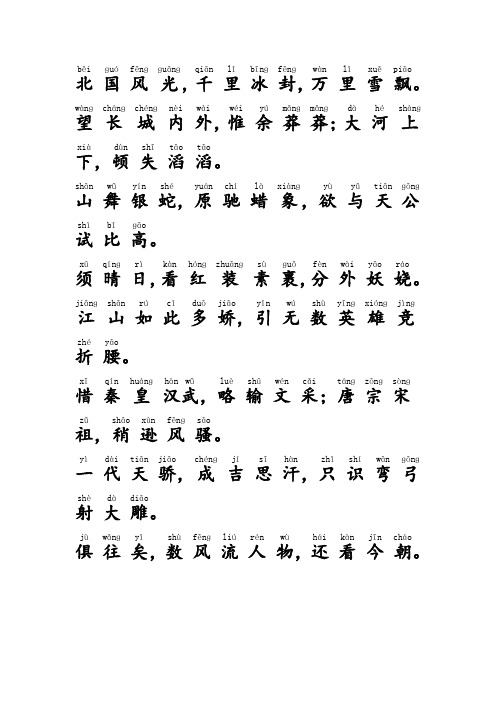 běi guó fēng guāng qiān lǐ bīng fēng wàn lǐ xuě piāo
北国风光,千里冰封,万里雪飘。
wàng cháng chéng nèi wài wéi yú mǎng mǎng dà hé shàng
望长城内外,惟余莽莽;大河上
xià dùn shī tāo tāo
下,顿失滔滔。
shān wǔ yín shé yuán chí là xiàng yù yǔ tiān gōng
山舞银蛇,原驰蜡象,欲与天公
shì bǐ gāo
试比高。
xū qíng rì kàn hóng zhuāng sù guǒ fèn wài yāo ráo
须晴日,看红装素裹,分外妖娆。
jiāng shān rú cǐ duō jiāo yǐn wú shù yīng xióng jìng
江山如此多娇,引无数英雄竞
zhé yāo
折腰。
xī qín huáng hàn wǔ luè shū wén cǎi táng zōng sòng
惜秦皇汉武,略输文采;唐宗宋
zǔ shāo xùn fēng sāo
祖,稍逊风骚。
yì dài tiān jiāo chéng jí sī hàn zhǐ shí wān gōng
一代天骄,成吉思汗,只识弯弓
shè dà diāo
射大雕。
jù wǎng yǐ shù fēng liú rén wù hái kàn jīn cháo
俱往矣,数风流人物,还看今朝。